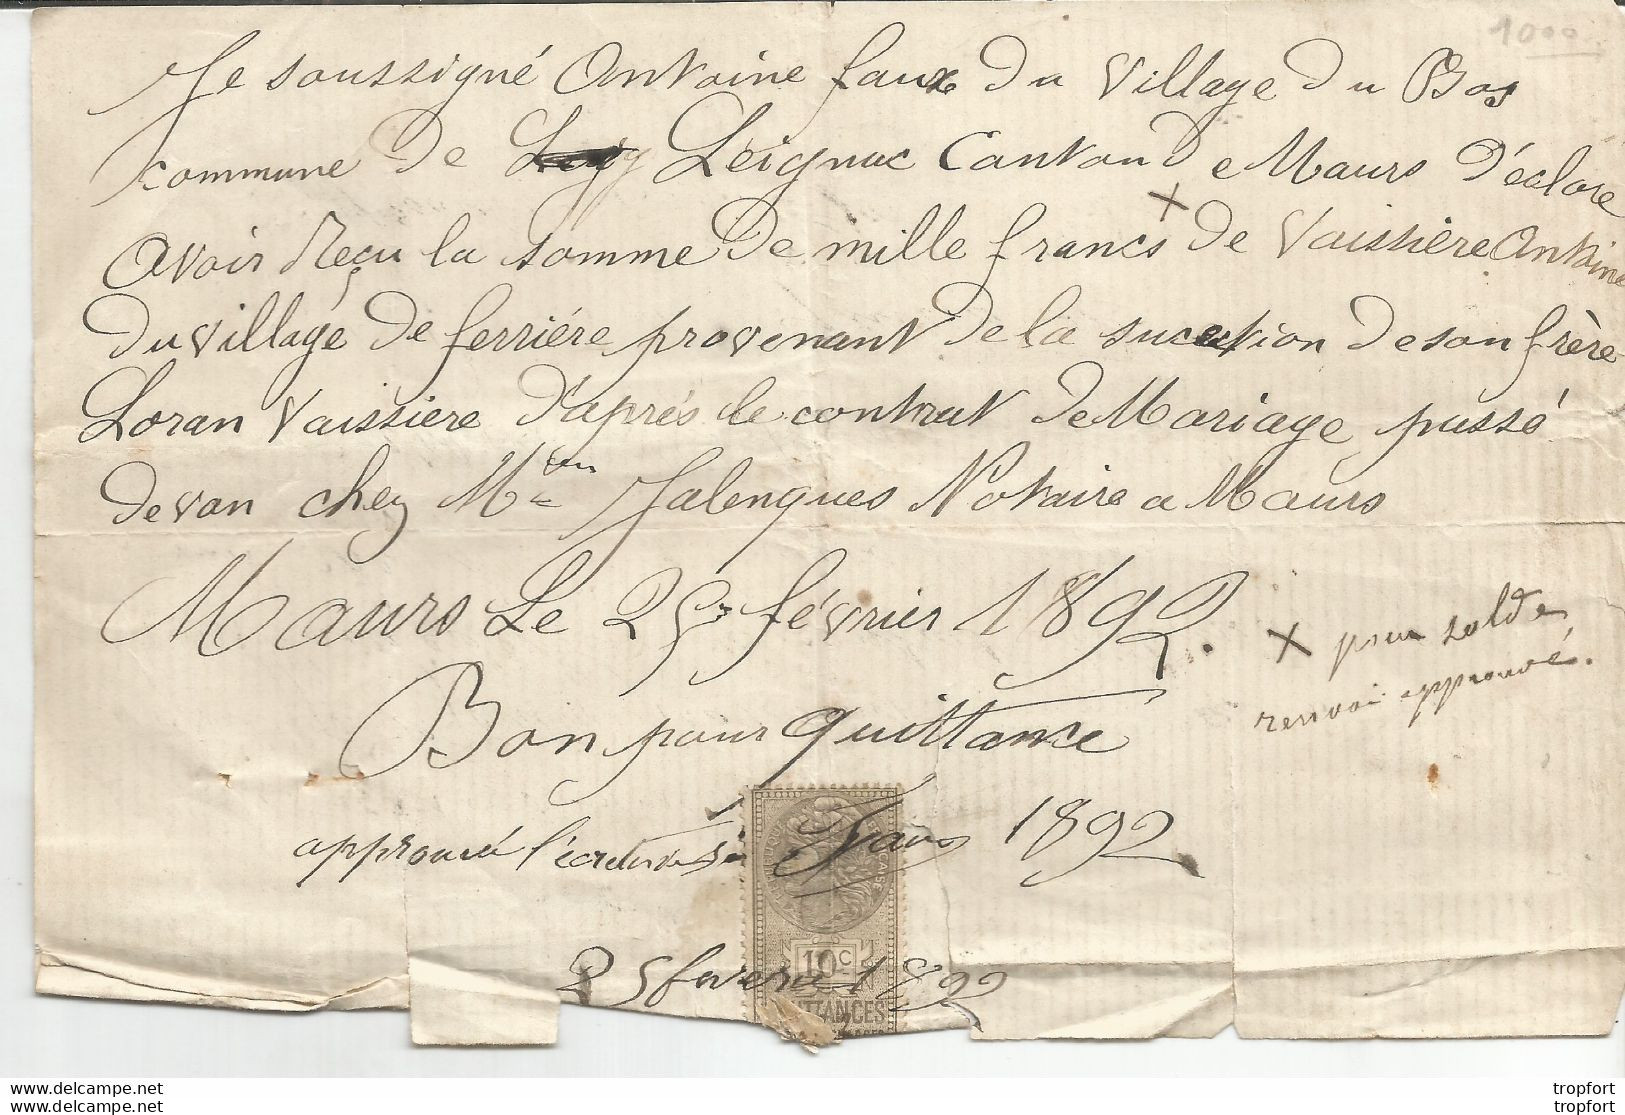 1000
Je soussigné Antoine faux du village du Bos
commune de Leignac Canton de Maurs d'éclare
avoir reçu la somme de mille francs x de Vaissière Antoine
du village de ferrière provenant de la sucession de son frère
Loran Vaissiere d'aprés le contrat de Mariage passé
devan chez M Jalengues Notaire a Maurs
Maurs Le 25 février 1892.
Bon pour quittance
x pour solde
renvoi approuvé.
approuvé l'écriture 1892
25 feverie 1892
10c
QUITTANCES
www.delcampe.net
tropfort
www.delcampe.net
tropfort